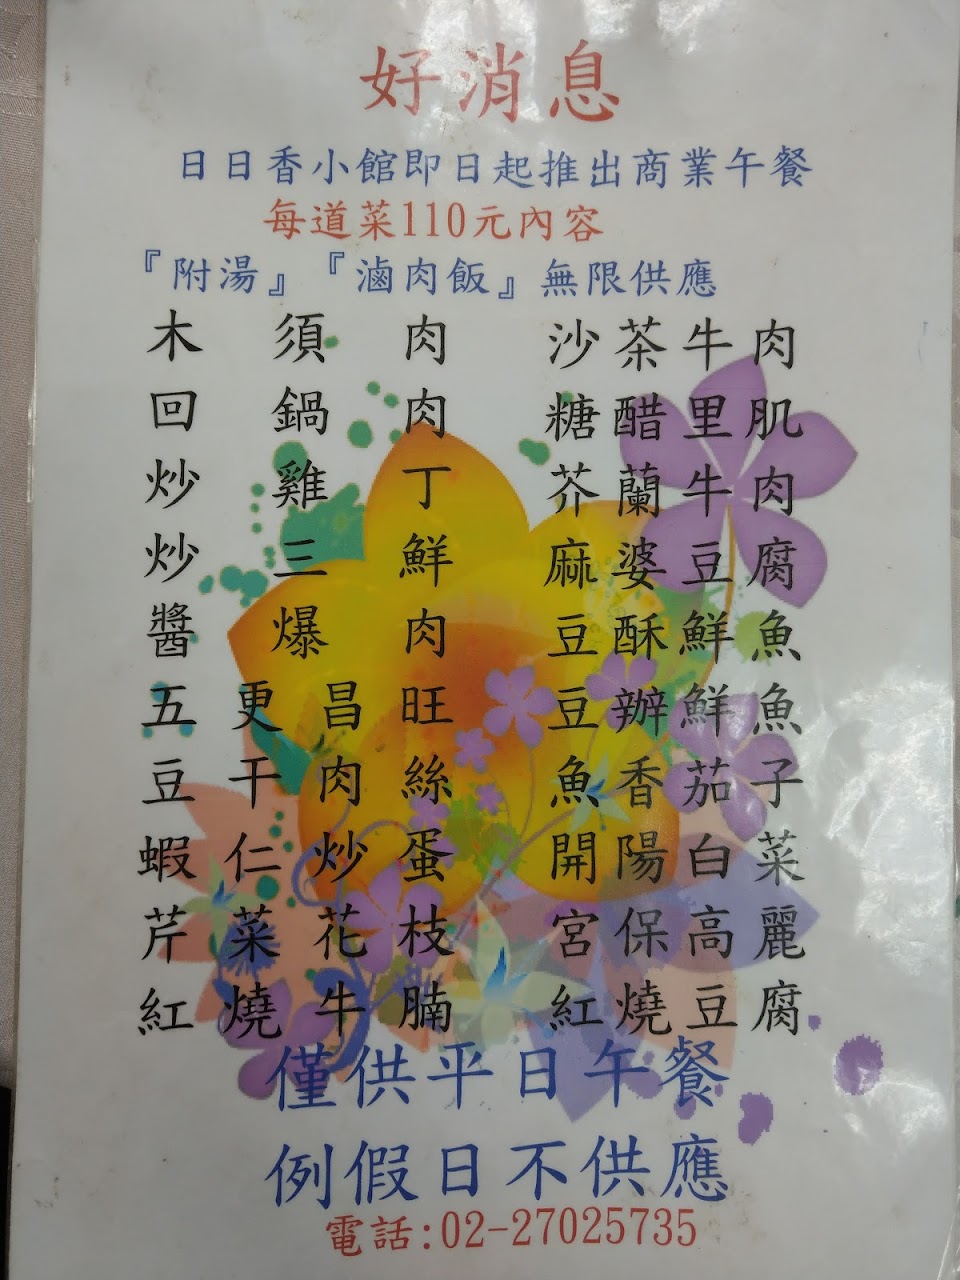 好消息
日日香小館即日起推出商業午餐
每道菜110元內容
『附湯』『滷肉飯』無限供應
木須肉 沙茶牛肉
回鍋肉 糖醋里肌
炒雞丁 芥蘭牛肉
炒三鮮 麻婆豆腐
醬爆肉 豆酥鮮魚
五更昌旺 豆辦鮮魚
豆干肉絲 魚香茄子
蝦仁炒蛋 開陽白菜
芹菜花枝 宮保高麗
紅燒牛腩 紅燒豆腐
僅供平日午餐
例假日不供應
電話:02-27025735